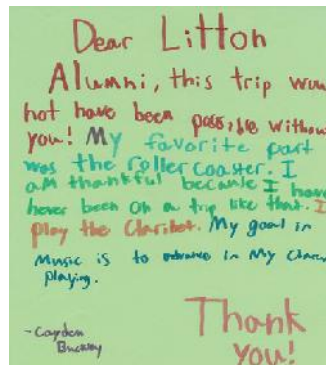 Dear Litton
Alumni, this trip wou
not have been possible withou
you! My favorite part
was the roller coaster. I
am thankful because I have
never been on a trip like that. I
play the Clarinet. My goal in
Music is to advance in My Clarin
playing.
Thank
you!
-Cayden